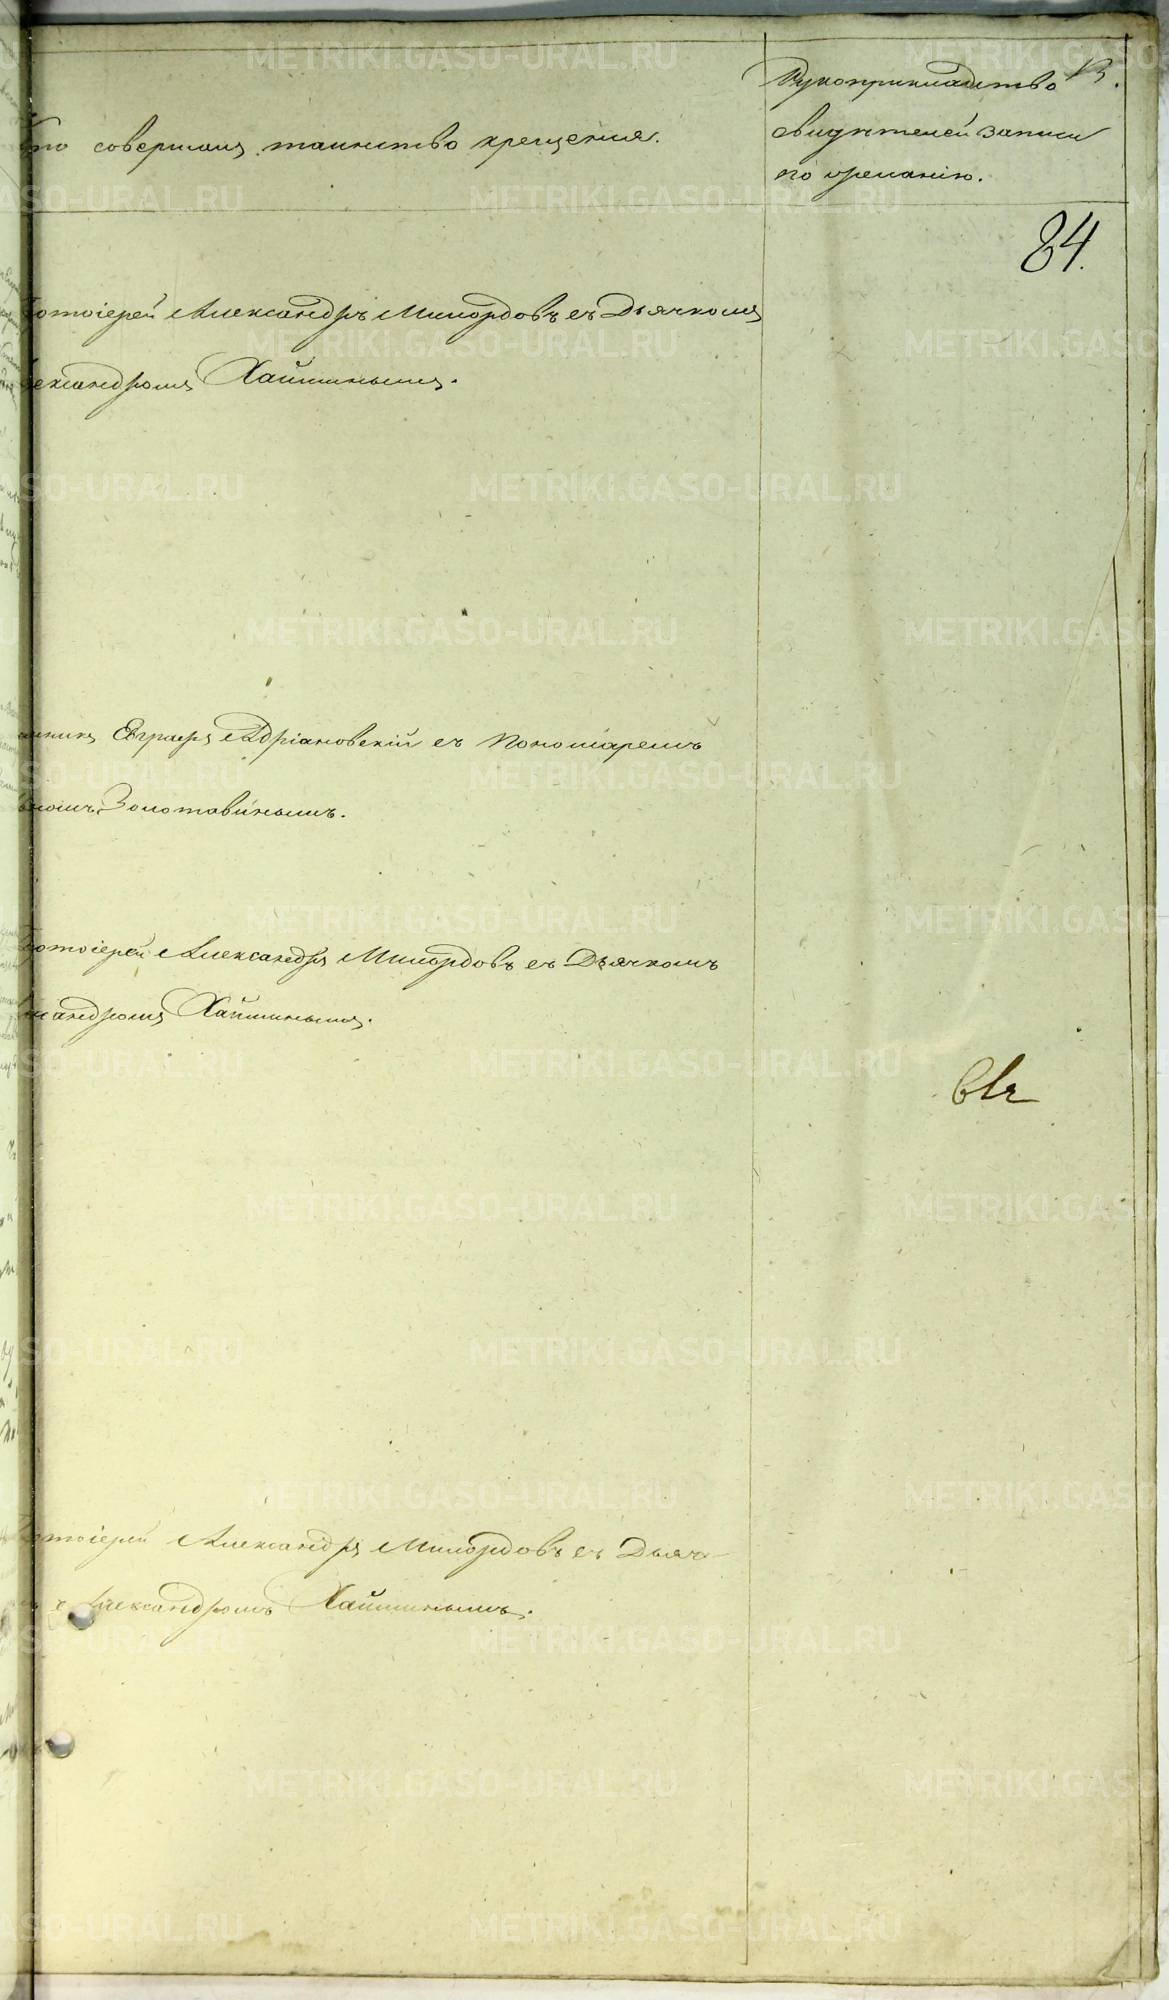 13.
Кто совершалъ таинство крещенія.
Рукоприкладство
свидѣтелей записи
по желанію.
84.
Протоіерей Александръ Милордовъ съ Дьячкомъ
Александромъ Хайминымъ.
Евграфъ Адріановскій съ Пономаремъ
Золотавинымъ.
Протоіерей Александръ Милордовъ съ Дьячкомъ
Александромъ Хайминымъ.
Протоіерей Александръ Милордовъ съ Дьяч-
Александромъ Хайминымъ.
METRIKI.GASO-URAL.RU